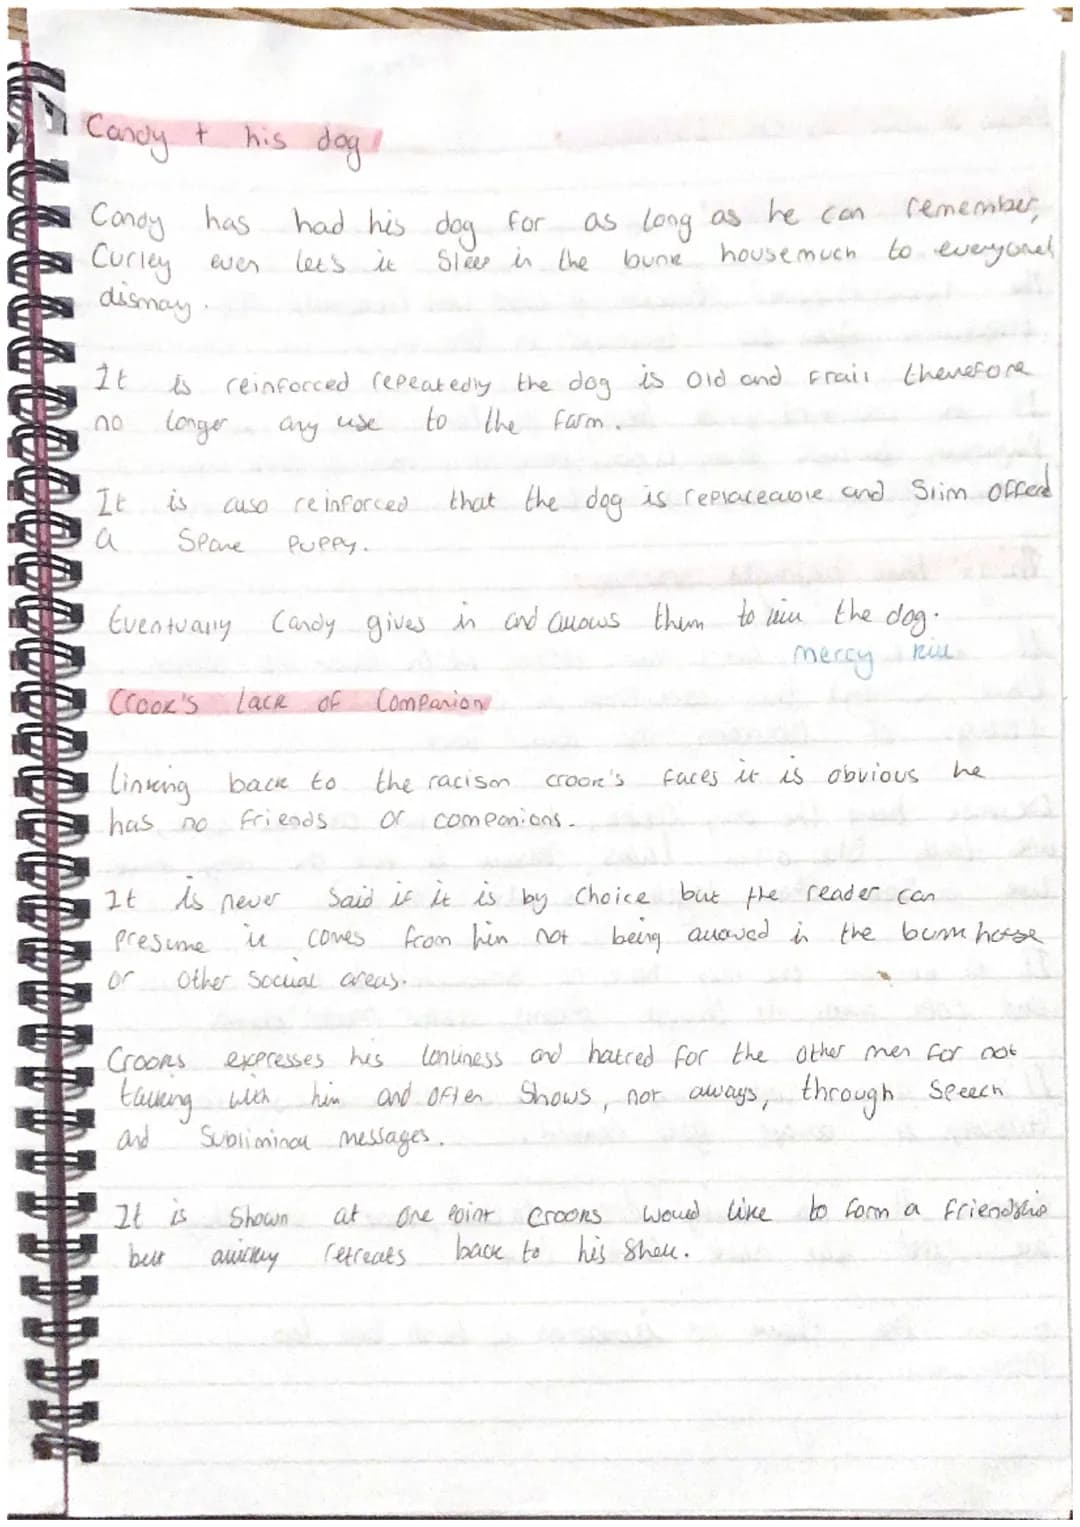 Candy + his dog
Candy has had his dog for as long as he can remember,
Curley even let's it sleep in the bunk house much to everyones
dismay.
It is reinforced repeatedly the dog is old and frail therefore
no longer any use to the farm.
It is also reinforced that the dog is replaceable and Slim offered
a spare puppy.
Eventually Candy gives in and allows them to kill the dog.
mercy kill
Crook's Lack of Companion
Linking back to the racism crook's faces it is obvious he
has no friends or companions.
It is never said if it is by choice but the reader can
presume it comes from him not being allowed in the bunk house
or other social areas.
Crooks expresses his lonliness and hatred for the other men for not
talking with him and often shows, not always, through speech
and subliminal messages.
It is shown at one point crooks would like to form a friendship
but quickly retreats back to his shell.